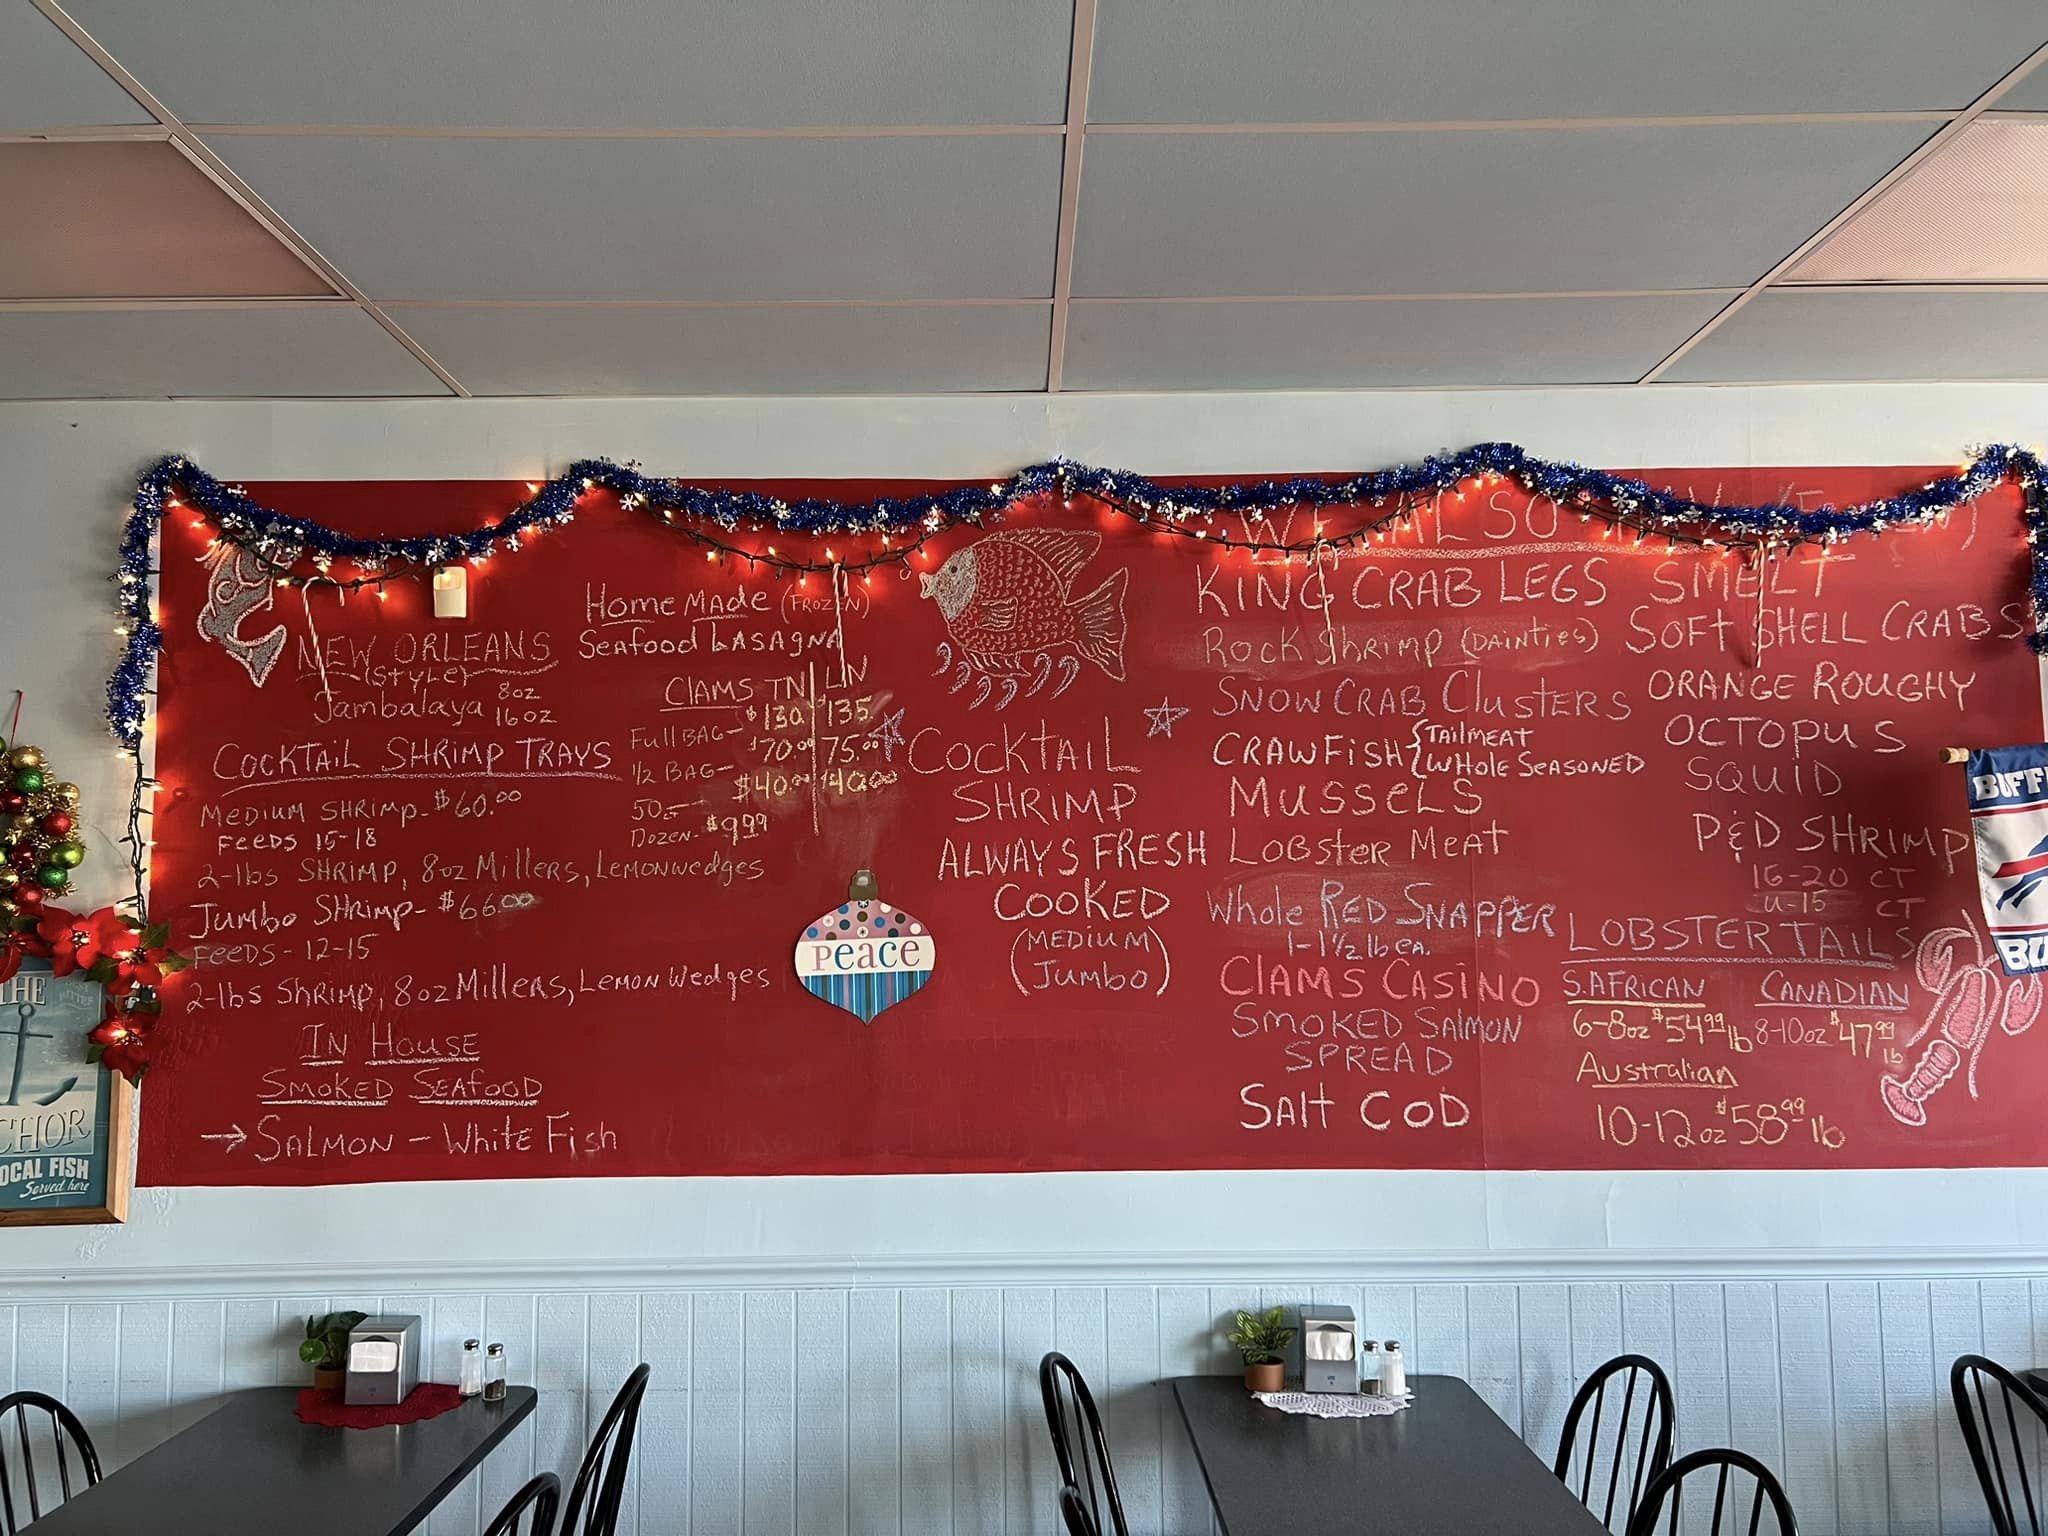 NEW ORLEANS
(STYLE)
Jambalaya 8oz
16oz
COCKTAIL SHRIMP TRAYS
MEDIUM SHRIMP- $60.00
FEEDS 15-18
2-lbs SHRIMP, 8oz Millers, Lemon wedges
Jumbo SHRIMP- $66.00
FEEDS - 12-15
2-lbs Shrimp, 8oz Millers, Lemon Wedges
IN HOUSE
SMOKED SEAFOOD
→ SALMON - White Fish
Home MAde (FROZEN)
Seafood LASAGNA
CLAMS TN LIN
Full BAG- $130. $135.
1/2 BAG- $70.00 75.00
50ct- $40.00 $40.00
Dozen- $9.99
Peace
COCKTAIL
SHRIMP
ALWAYS FRESH
COOKED
(MEDIUM)
(Jumbo)
WE ALSO HAVE
KING CRAB LEGS
Rock Shrimp (DAINTIES)
SNOW CRAB Clusters
CRAWFISH { Tailmeat
Whole SEASONED
MUSSELS
Lobster Meat
Whole RED SNAPPER
1-1½ lb ea.
CLAMS CASINO
SMOKED SALMON
SPREAD
SALT COD
SMELT
SOFT SHELL CRABS
ORANGE ROUGHY
OCTOPUS
SQUID
P&D SHRIMP
16-20 CT
U-15 CT
LOBSTER TAILS
S.AFRICAN CANADIAN
6-8oz $54.99 lb 8-10oz $47.99 lb
Australian
10-12oz $58.99 lb
BUFF
BU
THE
CHOR
OCAL FISH
Served here